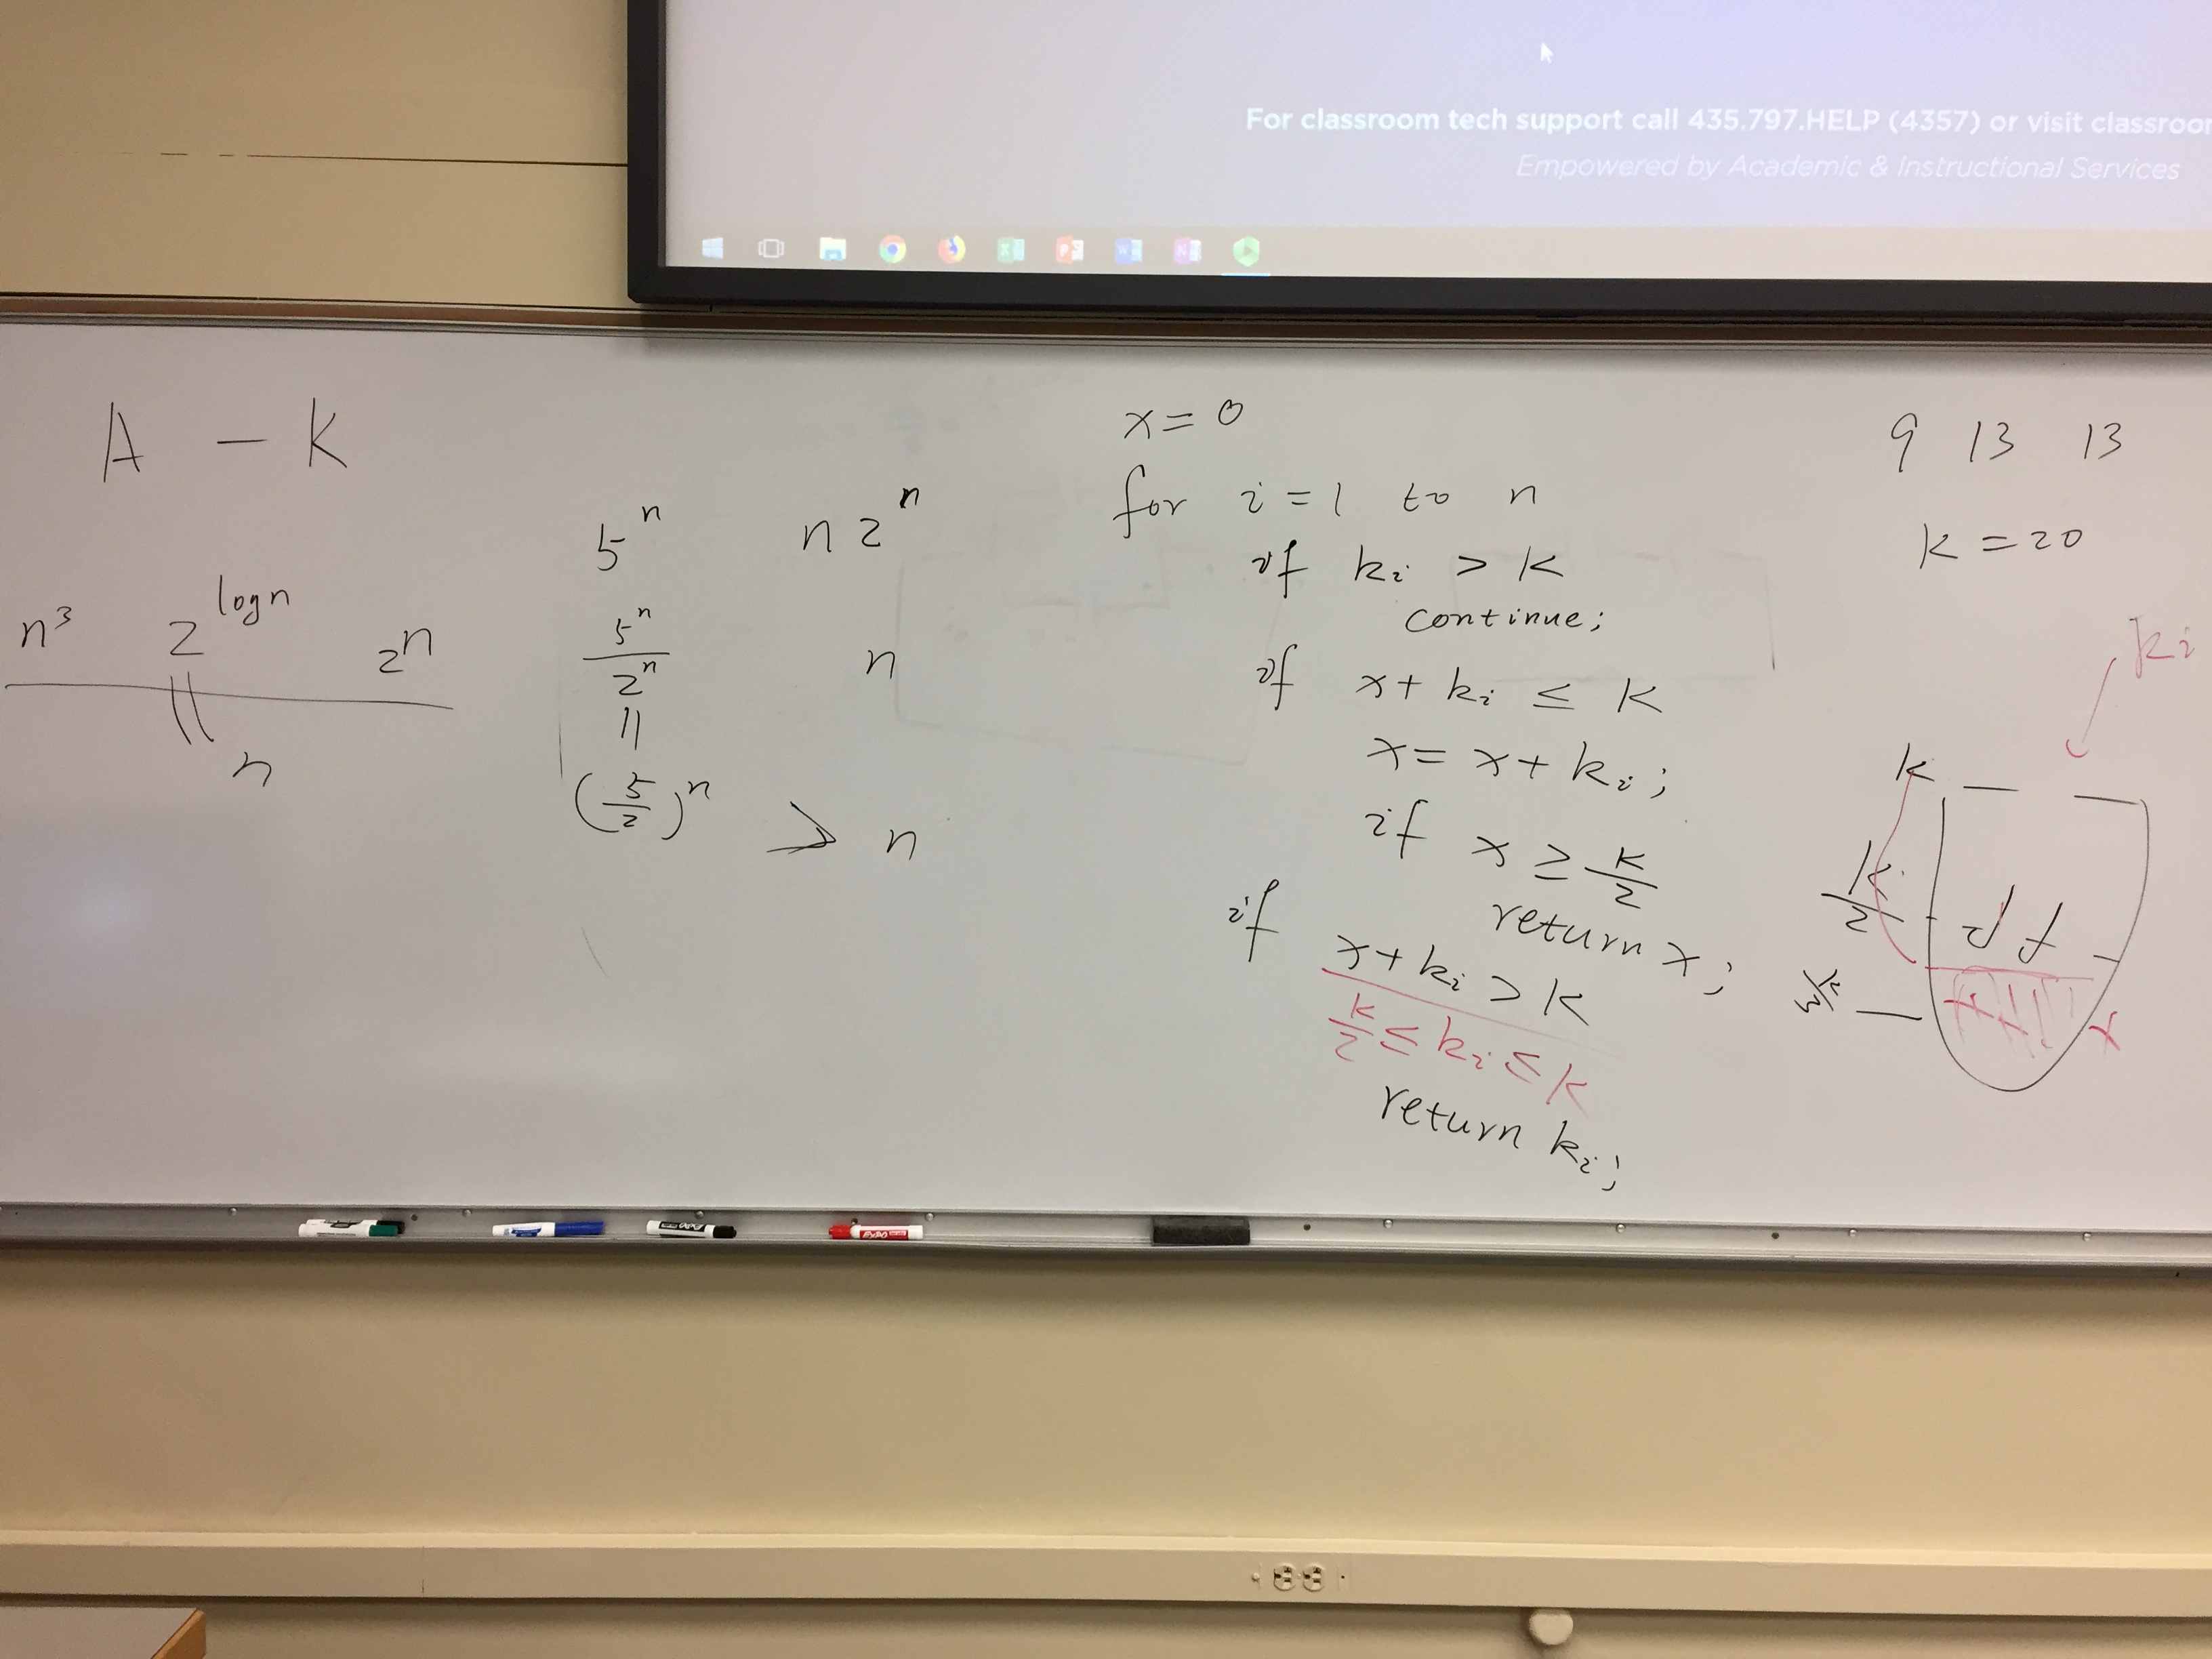 For classroom tech support call 435.797.HELP (4357) or visit classroo
Empowered by Academic & Instructional Services
A - K
n³ 2^{log n} 2^n
||
n
5^n n 2^n
5^n / 2^n n
||
(5/2)^n > n
x = 0
for i = 1 to n
if k_i > K
continue;
if x + k_i ≤ K
x = x + k_i;
if x ≥ K/2
return x;
if x + k_i > K
K/2 ≤ k_i ≤ K
return k_i;
9 13 13
K = 20
k_i
K
K/2
x
EXPO
EXPO